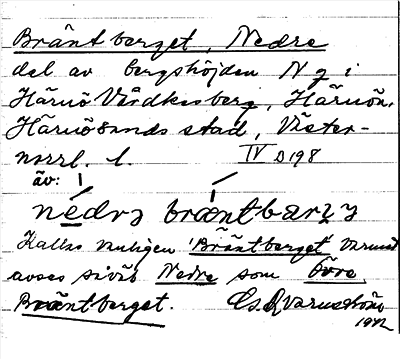 Bräntberget, Nedre
del av bergshöjden N g i
Härnö Vårdkasberg, Härnön,
Härnösands stad, Väster-
norrl. l. IV D 198
äv:
nedrə bræntbærʒə
Kallas vanligen 'Bräntberget' varmed
avses såväl Nedre som Övre
Bräntberget.
1942